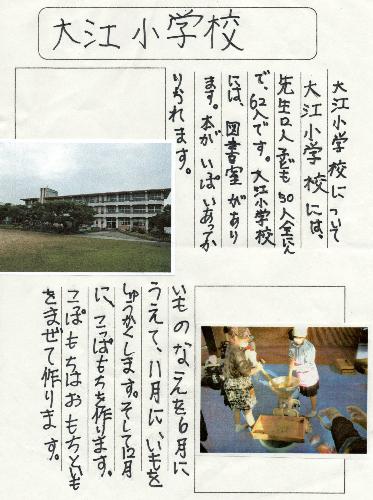 大江小学校
大江小学校について
大江小学校には、
先生12人子ども50人全ぶん
で、62人です。大江小学校
には、図書室があり
ます。本がいぱいあってか
りられます。
いものなえを6月に
うえて、11月に、いもを
しゅうかくします。そして12月
に、こっぱもちを作ります。
こっぱもちはおもちといも
をまぜて作ります。